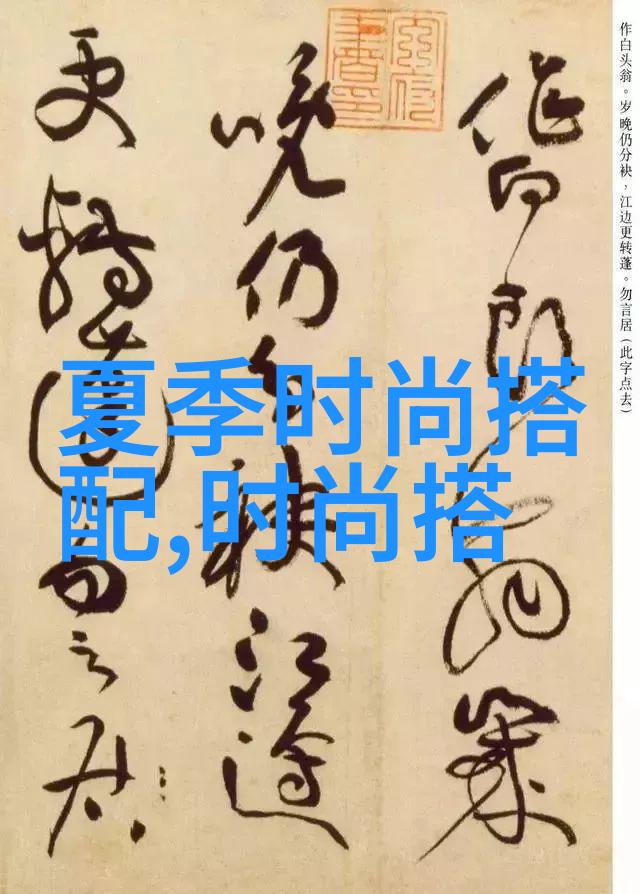 作白头翁。岁晚仍分袂，江边更转蓬。勿言居（此字点去）
作白頭翁歲
晚仍分袂江邊
更轉蓬勿言居
夏季时尚搭
配,时尚搭